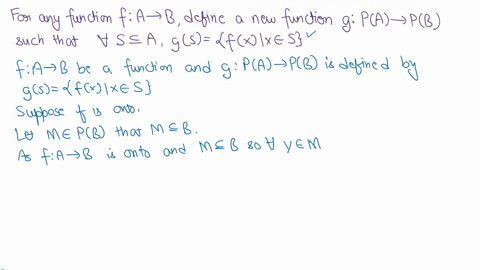 For any function f: A→B, define a new function g: P(A)→P(B)
such that ∀ S⊆A, g(S)= {f(x)|x∈S} ✓
f: A→B be a function and g: P(A)→P(B) is defined by
g(S)= {f(x)|x∈S}
Suppose f is onto.
Let M∈P(B) that M⊆B.
As f: A→B is onto and M⊆B so ∀ y∈M